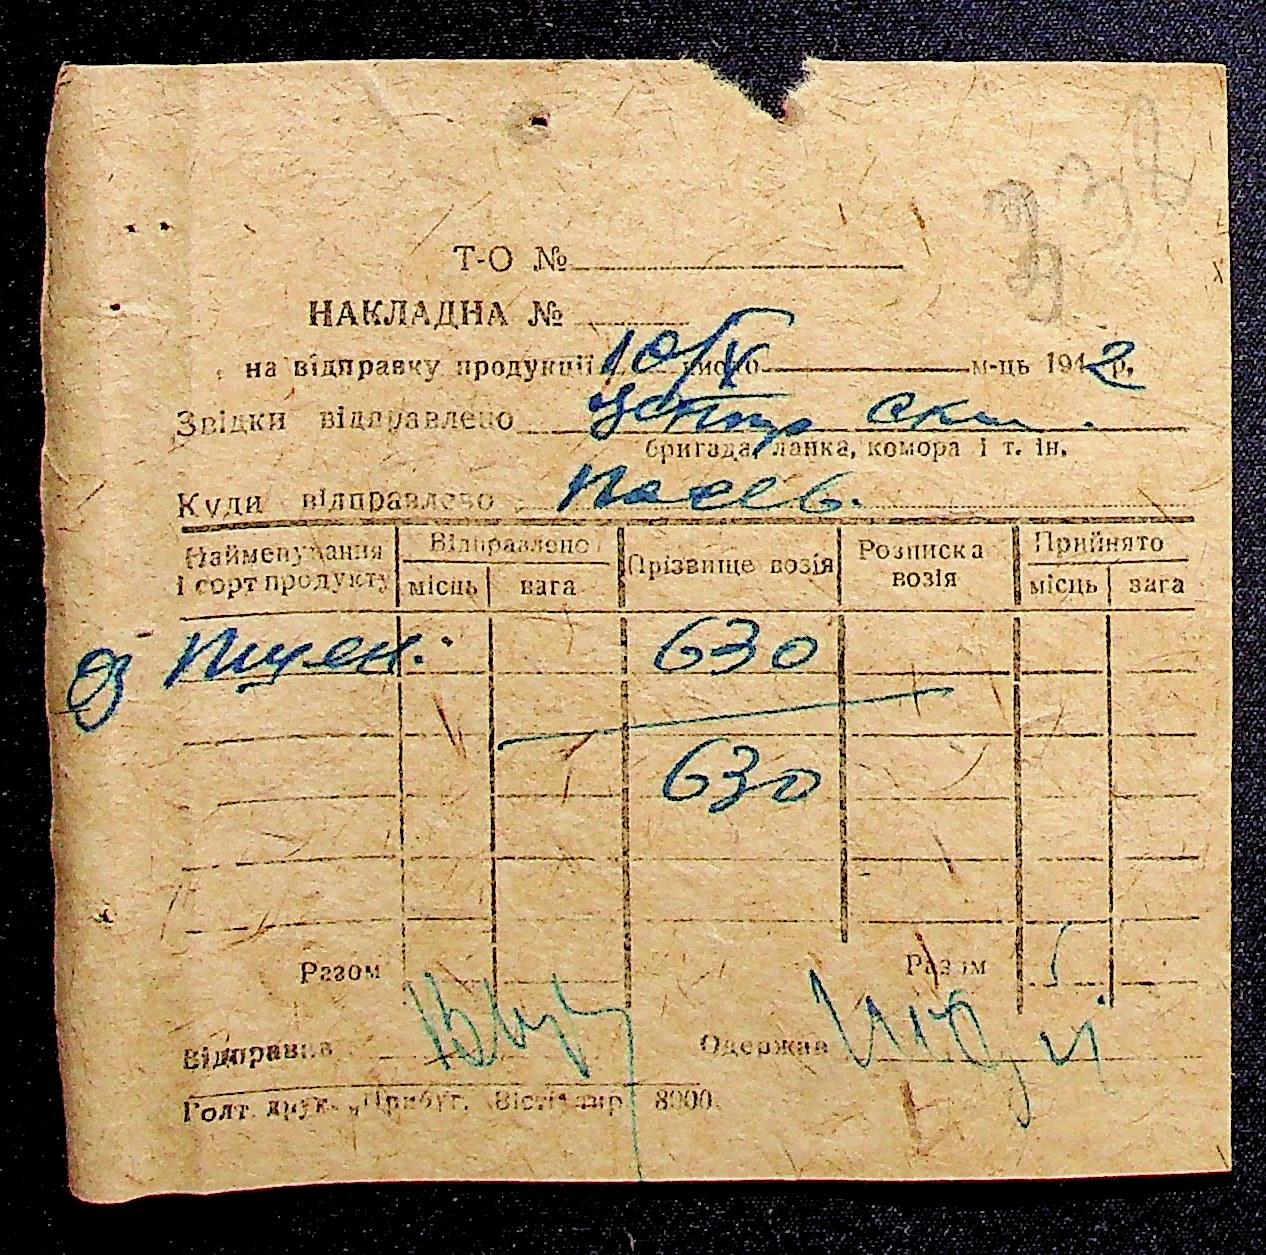 338
Т-О №
НАКЛАДНА №
на відправку продукції 10/X число м-ць 1942 р.
Звідки відправлено центр скл.
бригада, ланка, комора і т. ін.
Куди відправлено посів.
Найменування і сорт продукту Відправлено Прізвище возія Розписка возія Прийнято
місць вага місць вага
оз пшен. 630
630
Разом Разом
Відправив Одержав
Голт. друк. „Прибуг. Вісті" зам. 8000.